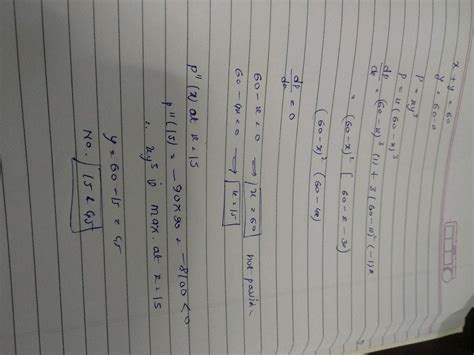 x + y = 60
y = 60 - x
P = xy³
P = x(60-x)³
dp/dx = (60-x)³ (1) + 3(60-x)² (-1)x
= (60-x)² [60-x-3x]
(60-x)² (60-4x)
dp/dx = 0
60-x=0 → x=60 not possible
60-4x=0 → x=15
P"(x) at x=15
P"(15) = -90x90 = -8100 < 0
∴ xy³ is max. at x=15
y = 60-15 = 45
No. 15 & 45